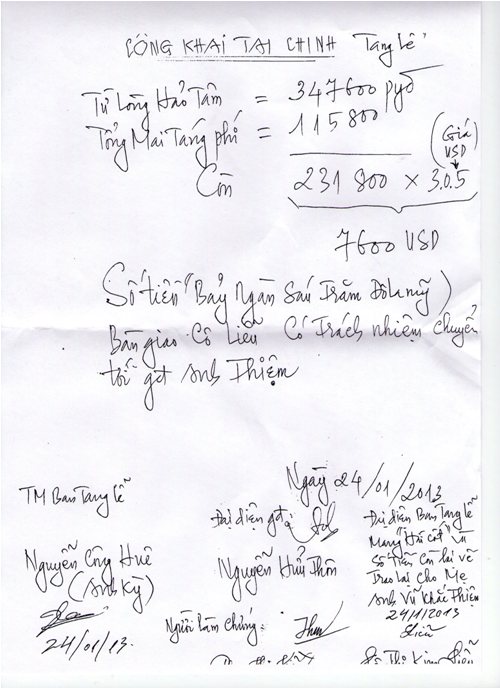 CÔNG KHAI TAI CHINH "Tang lễ"
Từ Lòng Hảo Tâm = 347600 руб
Tổng Mai Táng phí = 115800
(Giá USD)
Còn 231 800 × 30.5
7600 USD
Số tiền "Bảy Ngàn Sáu Trăm Đôla mỹ)
Bàn giao Cô Liễu Có Trách nhiệm chuyển
tới gđ Anh Thiệm
Ngày 24/01/2013
TM Ban Tang lễ
Nguyễn Công Huê
(Anh Kỳ)
24/01/13.
Đại diện gđ:
Nguyễn Hữu Thôn
Người làm chứng:
Đại diện Ban Tang lễ
Mang "Hũ cốt" và
Số tiền Còn lại về
Trao lại cho Mẹ
Anh Vũ Khắc Thiệm
24/1/2013
Liễu